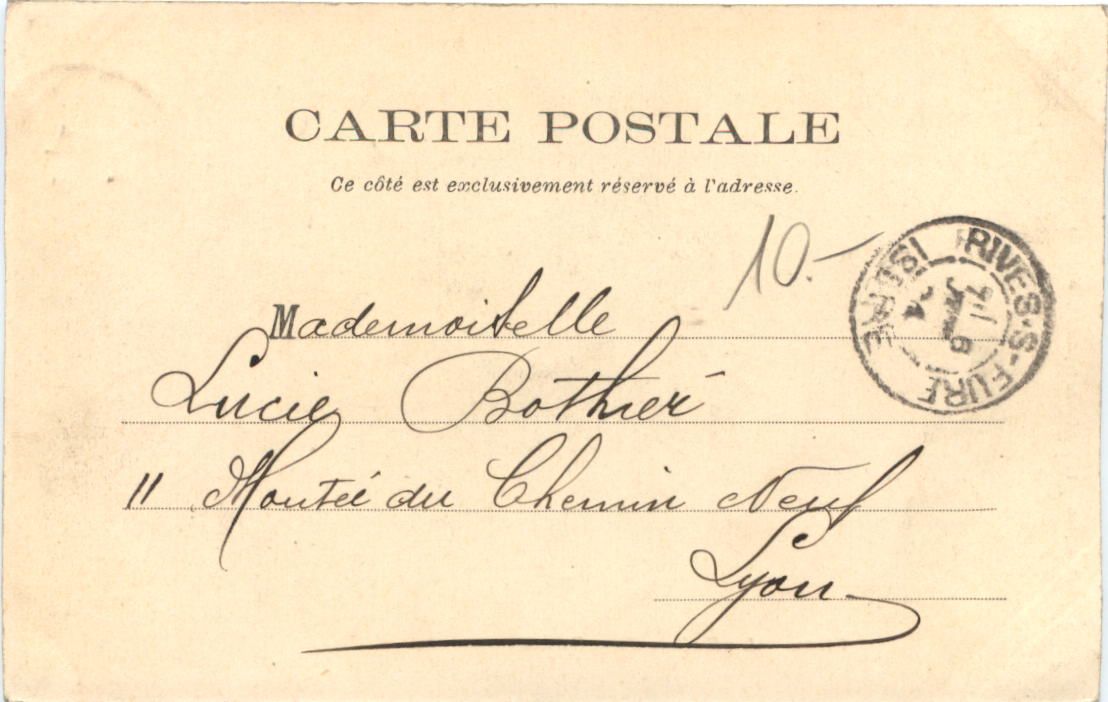 CARTE POSTALE
Ce côté est exclusivement réservé à l'adresse.
10.-
RIVES-S-FURE
ISÈRE
Mademoiselle
Lucie Bothier
11 Montée du Chemin Neuf
Lyon